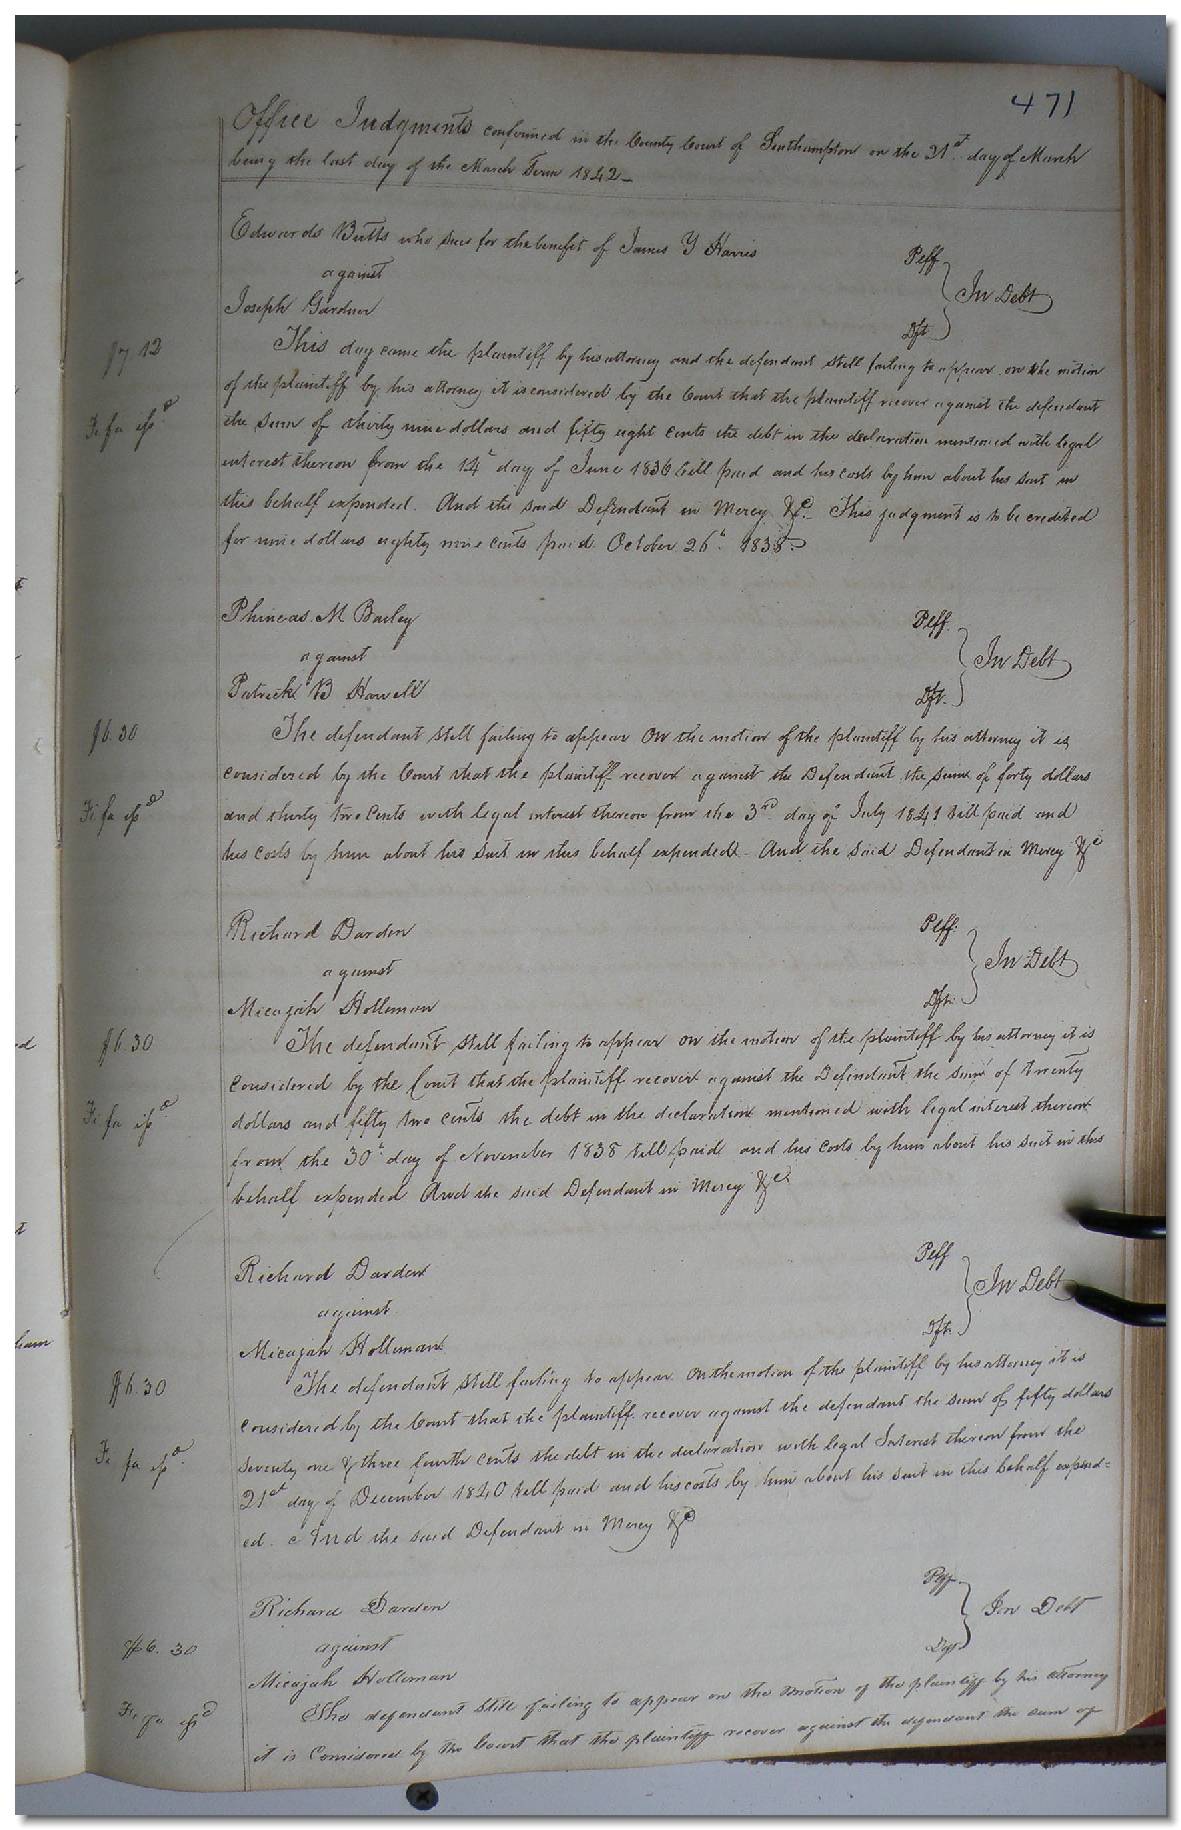 471
Office Judgments confirmed in the County Court of Southampton on the 31st day of March
being the last day of the March Term 1842 —
Edwards Butts who sues for the benefit of James Y Harris Plff
against In Debt
Joseph Gardner Dft
$7.12
This day came the plaintiff by his attorney and the defendant still failing to appear on the motion
of the plaintiff by his attorney it is considered by the Court that the plaintiff recover against the defendant
Fi fa issd
the sum of thirty nine dollars and fifty eight cents the debt in the declaration mentioned with legal
interest thereon from the 14th day of June 1836 till paid and his costs by him about his suit in
this behalf expended. And the said Defendant in Mercy &c. This judgment is to be credited
for nine dollars eighty nine cents paid October 26th. 1838.
Phineas. M Barley Plff.
against In Debt
Patrick B Howell Dft.
$6.30
The defendant still failing to appear On the motion of the plaintiff by his attorney it is
considered by the Court that the plaintiff recover against the Defendant the sum of forty dollars
Fi fa issd
and thirty two cents with legal interest thereon from the 3rd day of July 1841 till paid and
his costs by him about his suit in this behalf expended. And the said Defendant in Mercy &c
Richard Darden Plff.
against In Debt
Micajah Holleman Dft.
$6.30
The defendant still failing to appear on the motion of the plaintiff by his attorney it is
considered by the Court that the plaintiff recover against the Defendant the sum of twenty
Fi fa issd
dollars and fifty two cents the debt in the declaration mentioned with legal interest thereon
from the 30th day of November 1838 till paid and his costs by him about his suit in this
behalf expended And the said Defendant in Mercy &c.
Richard Darden Plff
against In Debt
Micajah Holleman Dft.
$6.30
The defendant still failing to appear On the motion of the plaintiff by his attorney it is
considered by the Court that the plaintiff recover against the defendant the sum of fifty dollars
Fi fa issd.
seventy one & three fourth cents the debt in the declaration with legal Interest thereon from the
21st day of December 1840 till paid and his costs by him about his suit in this behalf expend=
ed. And the said Defendant in Mercy &c
Richard Darden Plff
against In Debt
$6.30
Micajah Holleman Dft
Fi fa issd
The defendant still failing to appear on the motion of the plaintiff by his attorney
it is Considered by the Court that the plaintiff recover against the defendant the sum of